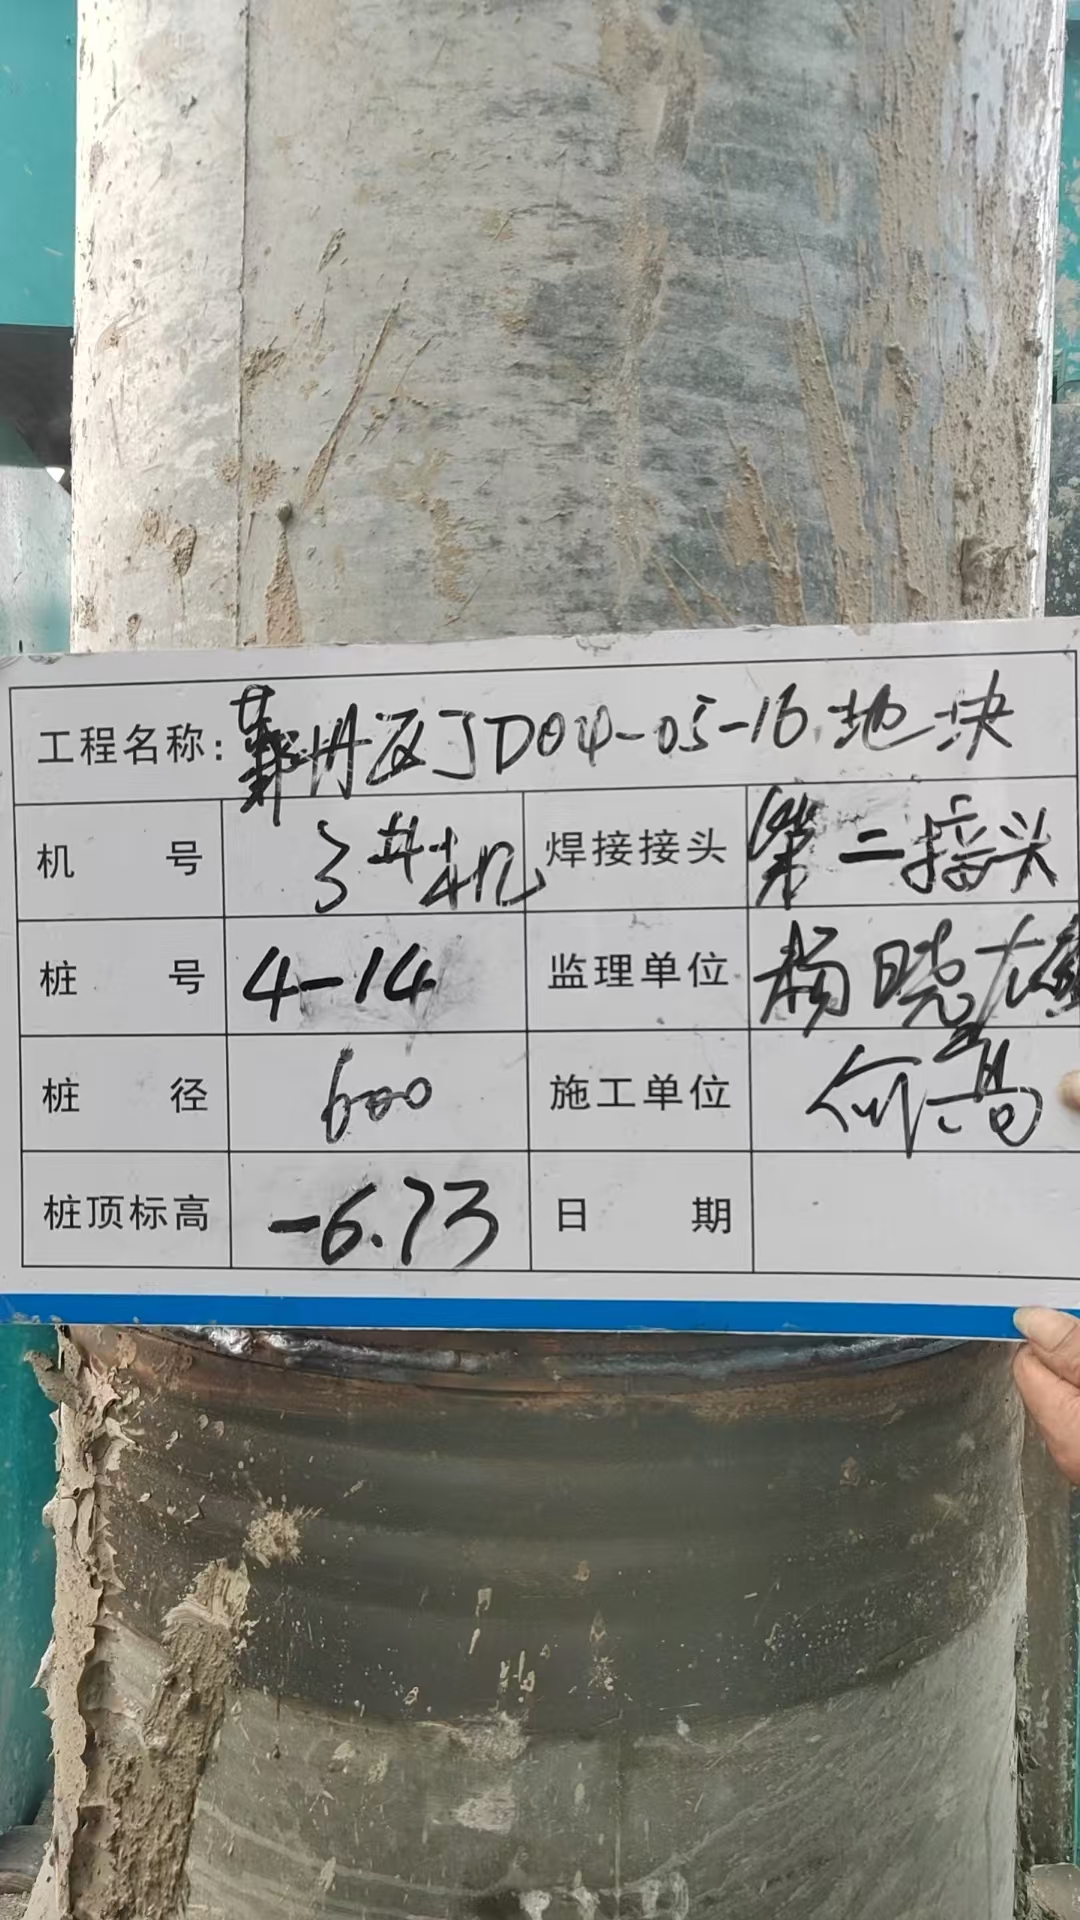 工程名称: 鄞州区JD04-05-16地块
机 号 3#机 焊接接头 第二接头
桩 号 4-14 监理单位 杨晓雄
桩 径 600 施工单位 何高
桩顶标高 -6.73 日 期